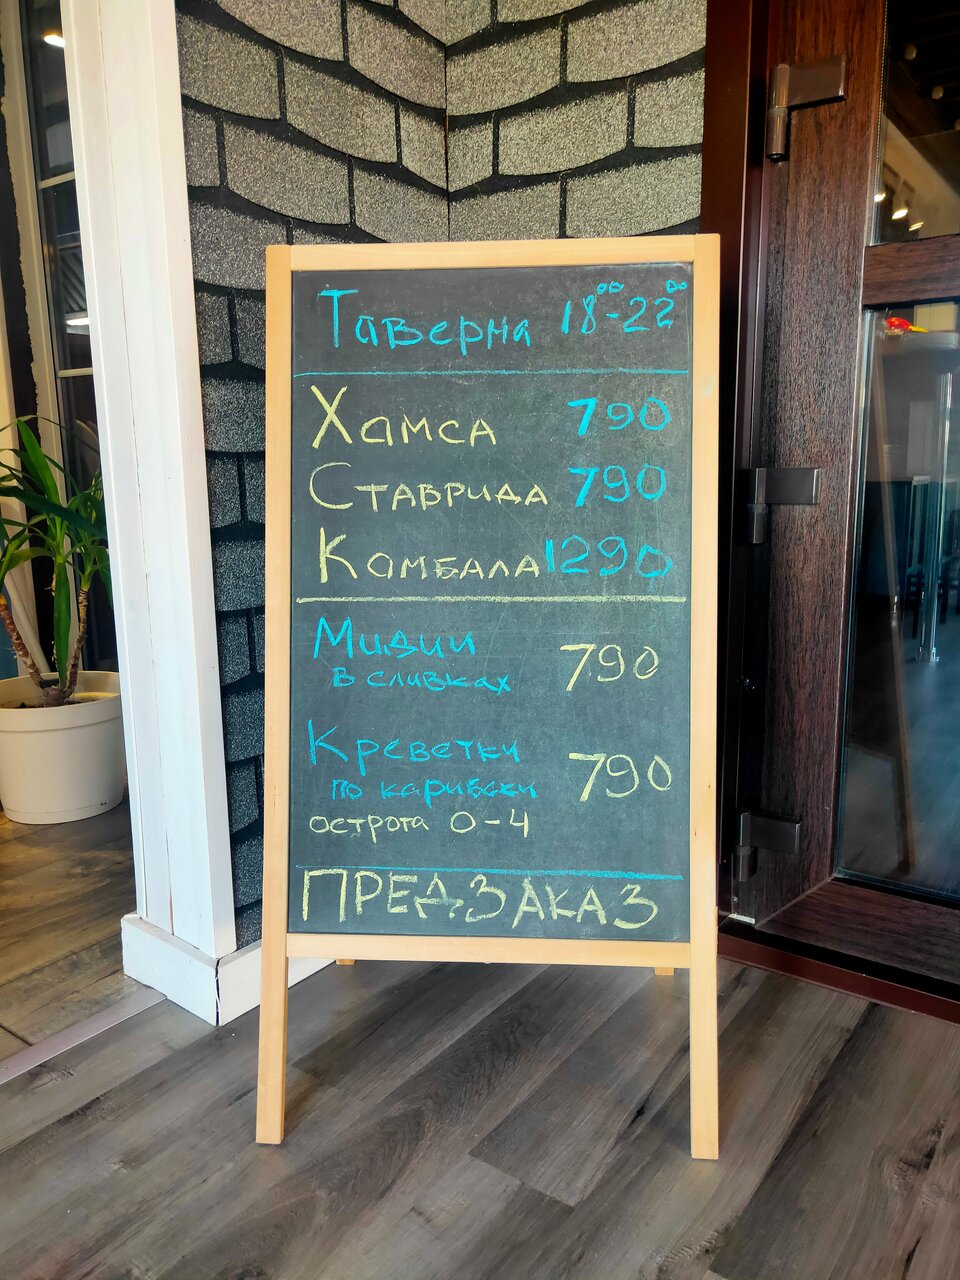 Таверна 18⁰⁰-22⁰⁰
Хамса 790
Ставрида 790
Камбала 1290
Мидии
в сливках 790
Креветки
по карибски 790
острота 0-4
ПРЕДЗАКАЗ